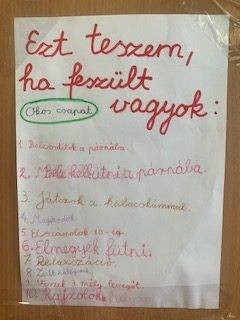 Ezt teszem,
ha feszült
vagyok:
Okos csapat
1. Beleordítok a párnába.
2. Bele kell ütni a párnába.
3. Játszok a halacskámmal.
4.
5. Elszámolok 10-ig.
6. Elmegyek futni.
7. Relaxszáció.
8. Zenét hallgatok.
9. Veszek 3 mély levegőt.
10. Rajzolok